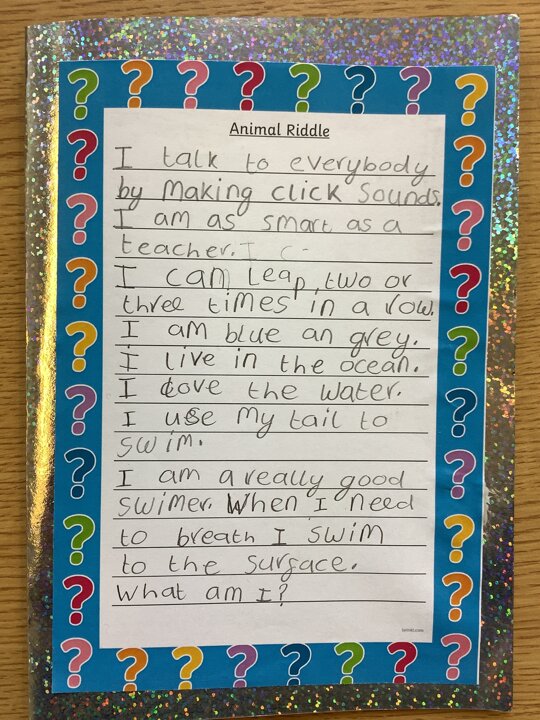 Animal Riddle
I talk to everybody
by making click sounds.
I am as smart as a
teacher. I c
I can leap two or
three times in a row.
I am blue an grey.
I live in the ocean.
I love the water.
I use my tail to
swim.
I am a really good
swimer. When I need
to breath I swim
to the surface.
What am I?
twinkl.com